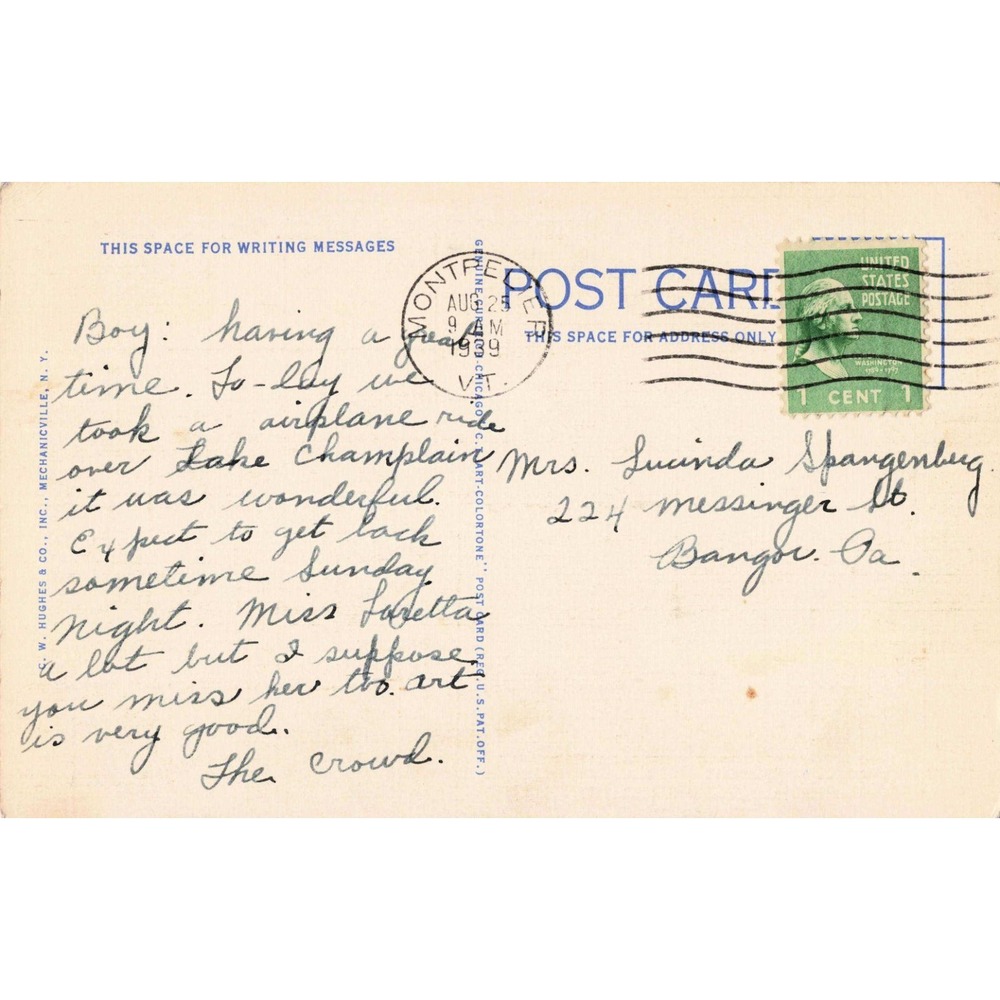 THIS SPACE FOR WRITING MESSAGES
Boy: having a great
time. To-day we
took a airplane ride
over Lake Champlain
it was wonderful.
Expect to get back
sometime Sunday
Night. Miss Loretta
a lot but I suppose
you miss her too. Art
is very good.
The Crowd.
C. W. HUGHES & CO., INC., MECHANICVILLE, N. Y.
GENUINE CURTEICH-CHICAGO "C. T. ART-COLORTONE" POST CARD (REG. U.S. PAT. OFF.)
MONTPELIER
AUG 25
9 AM
1939
VT.
POST CARD
THIS SPACE FOR ADDRESS ONLY
UNITED
STATES
POSTAGE
WASHINGTON
1789-1797
1 CENT 1
Mrs. Lucinda Spangenberg
224 Messinger St.
Bangor. Pa.